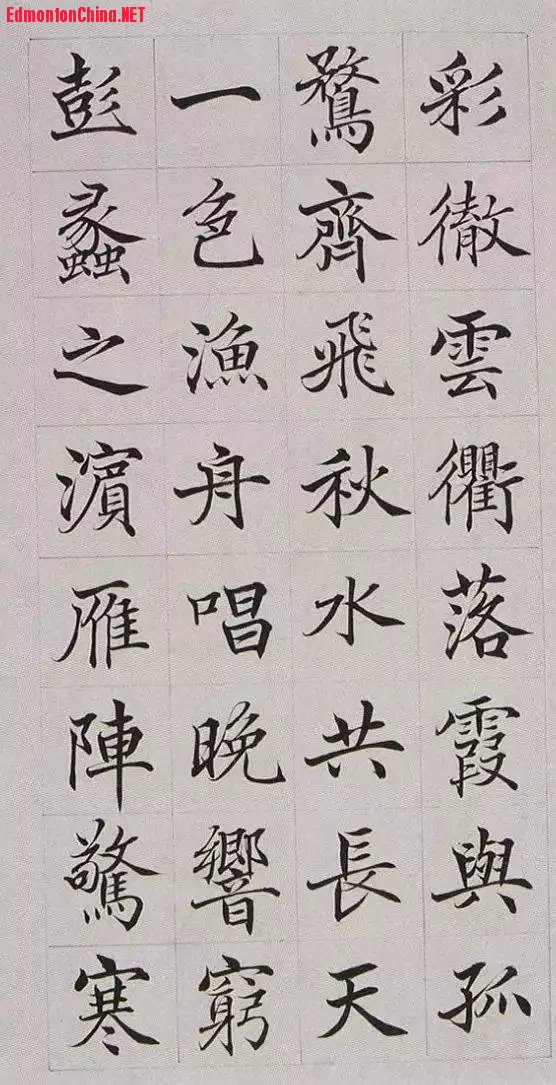 EdmontonChina.NET
彩徹雲衢落霞與孤
鶩齊飛秋水共長天
一色漁舟唱晚響窮
彭蠡之濱雁陣驚寒